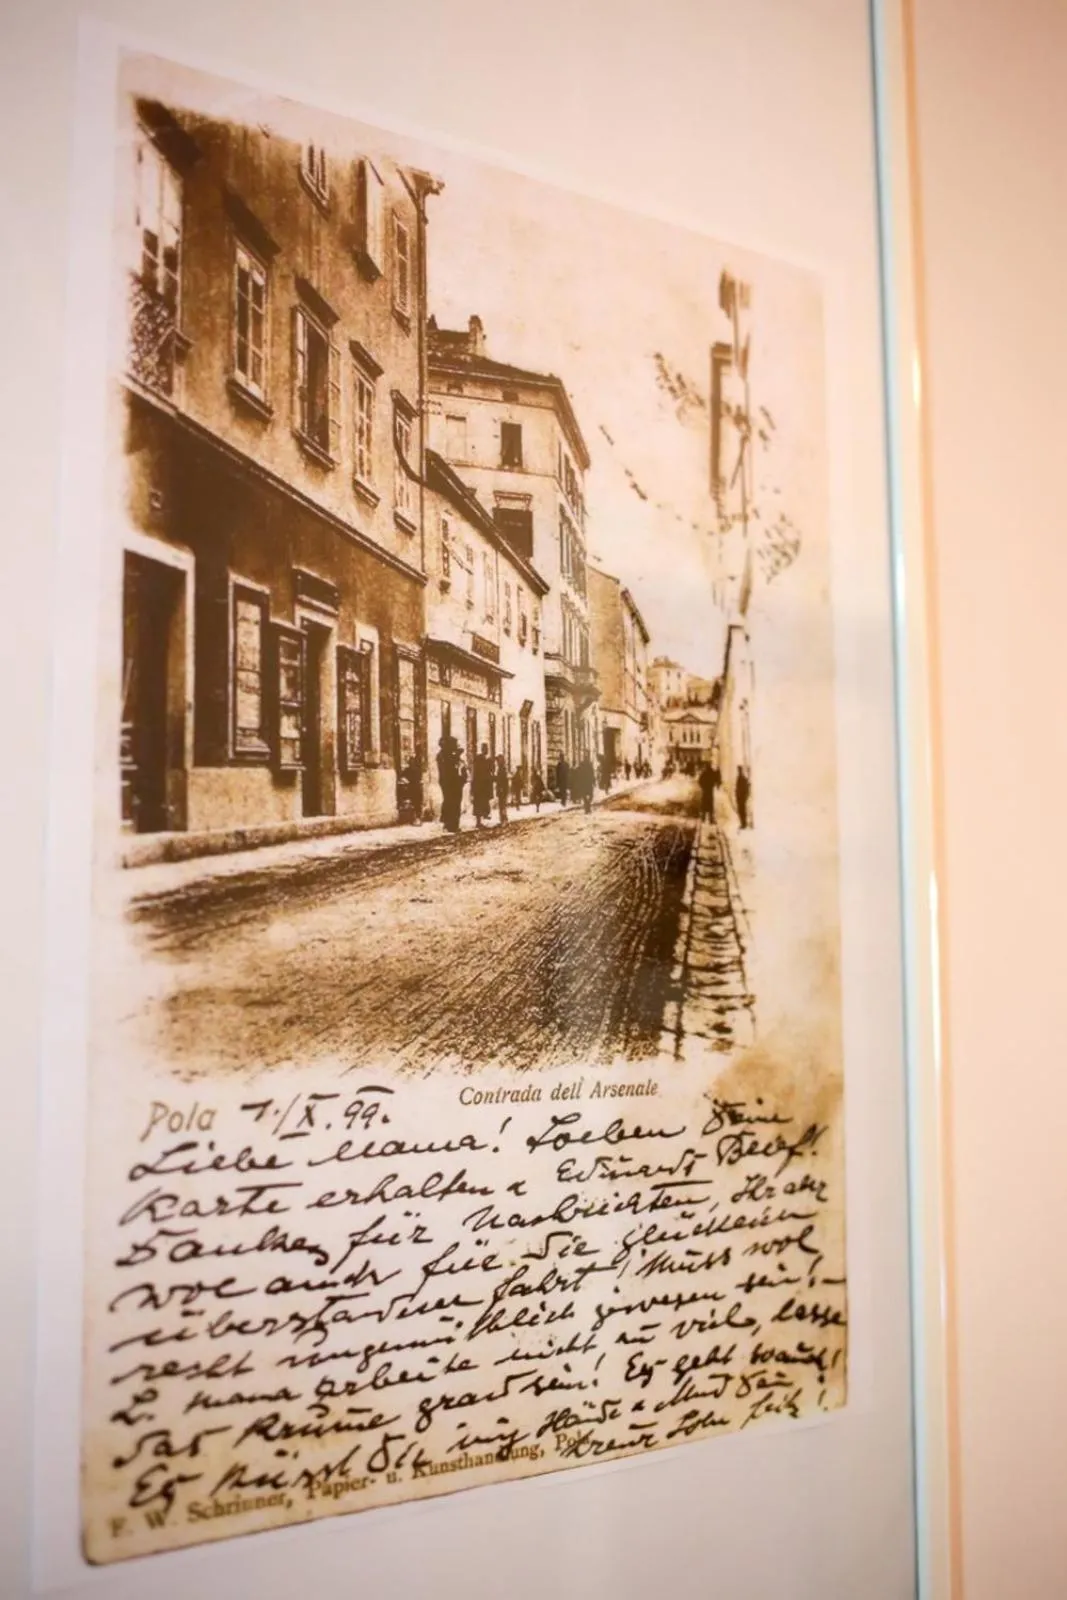 Contrada dell' Arsenale
Pola 7./X.99.
Liebe Mama! Soeben Deine
Karte erhalten u Eduards Brief!
Danke für Nachrichten, Ihr aber
wol auch für die glücklich
überstandene Fahrt! Muss wol
recht ungemüthlich gewesen sein! –
L. Mama arbeite nicht zu viel, lasse
das Krumme grad sein! Es geht auch!
Es küsst Dir innig Hände u Mund Dein
treuer Sohn Fritz!
F. W. Schrinner, Papier- u. Kunsthandlung, Pola